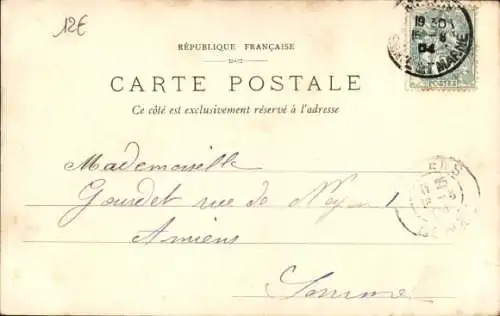 12€
RÉPUBLIQUE FRANÇAISE
CARTE POSTALE
Ce côté est exclusivement réservé à l'adresse
19 30
04
ET MARNE
Mademoiselle
Gourdet rue de
Amiens
Somme